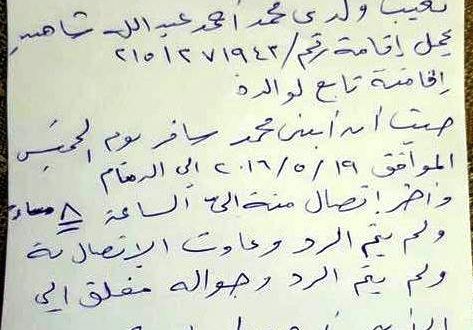 تغيب ولدى محمد أحمد عبدالله شاهين
يحمل إقامة رقم / ٢١٥١٢٧١٩٤٢
إقامتة تابع لوالدة
حيث أن أبنى محمد سافر يوم الخميس
الموافق ١٩ / ٥ / ٢٠١٦ إلى الدمام
وأخر إتصال منة الى الساعة ٨ مساء
ولم يتم الرد وعاوت الإتصال بة
ولم يتم الرد وجواله مغلق إلى